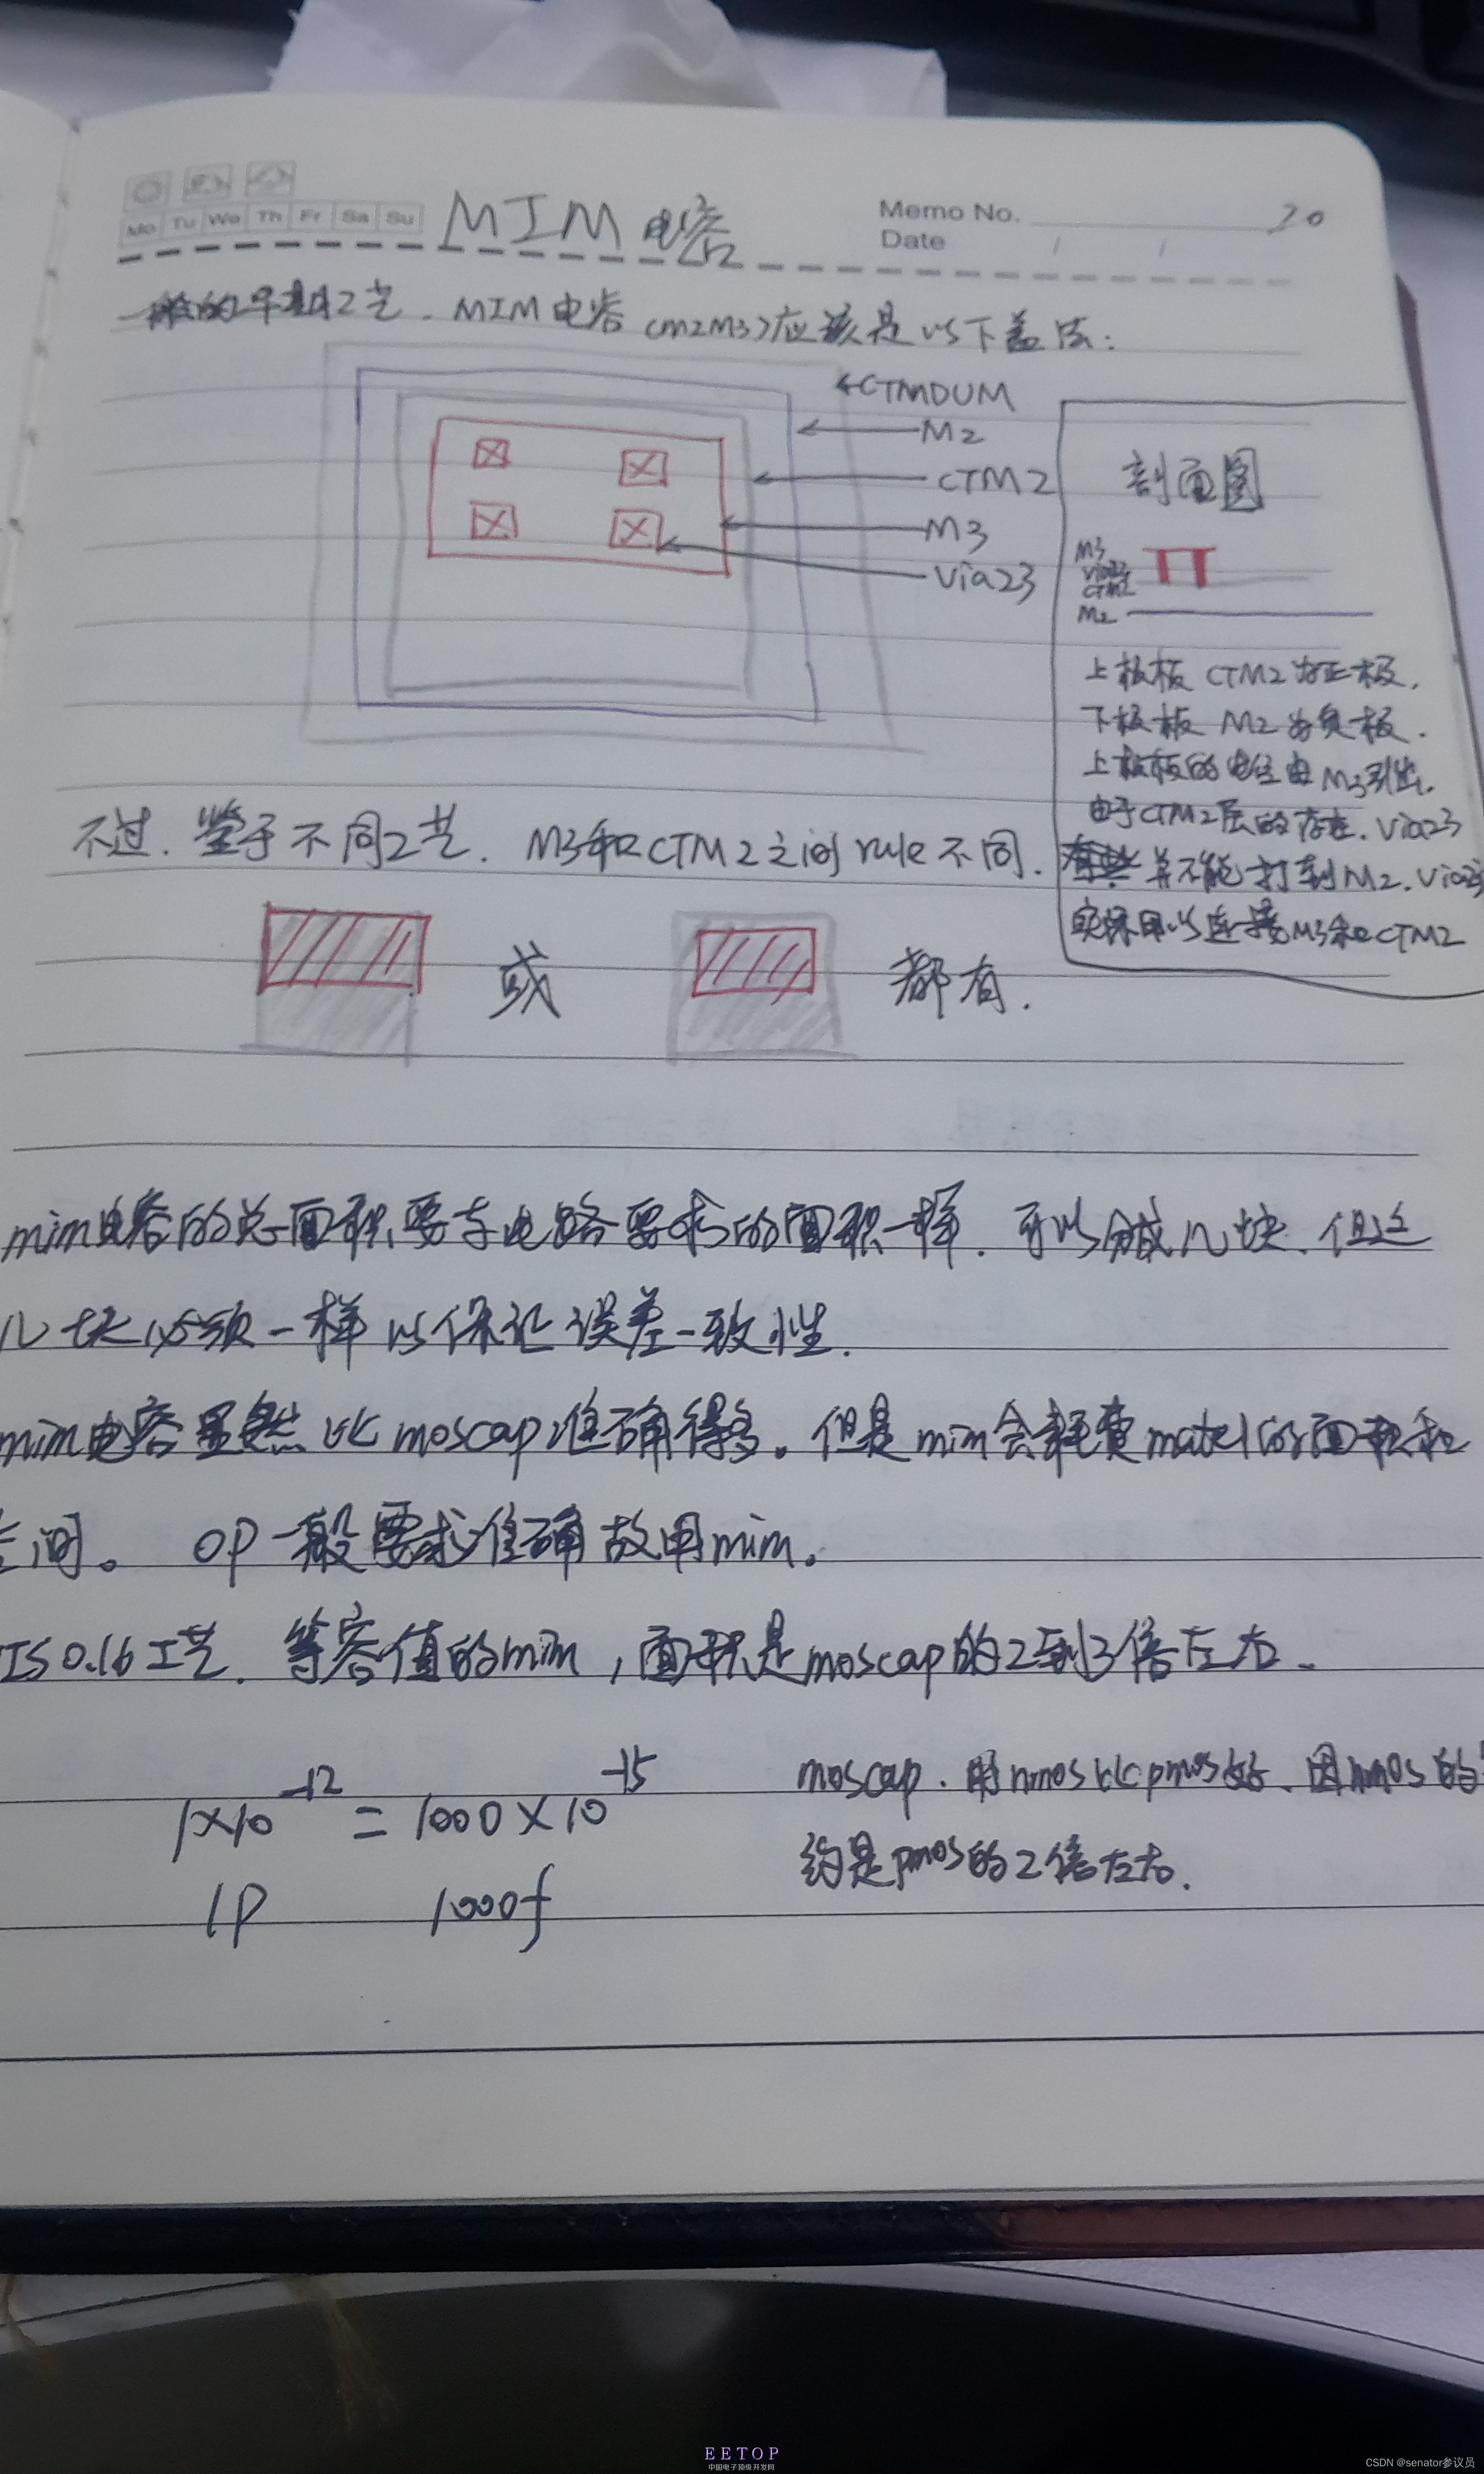 Mo Tu We Th Fr Sa Su
MIM 电容
Memo No. 20
Date / /
一般的早期工艺. MIM电容 (M2M3)应该是以下盖法:
←CTMDUM
M2
CTM2
M3
Via23
剖面图
M3
Via23
CTM2
M2
上极板 CTM2为正极.
下极板 M2为负极.
上极板的电位由M3引出.
由于CTM2层的存在. Via23
并不能打到M2. Via23
实际用以连接M3和CTM2
不过. 鉴于不同工艺. M3和CTM2之间rule不同.
或
都有.
mim电容的总面积要与电路要求的面积一样. 可以分成几块. 但这
几块必须一样以保证误差一致性.
mim电容虽然比moscap准确得多。但是mim会耗费matel的面积和
空间。 OP一般要求准确故用mim。
IS0.16工艺. 等容值的mim, 面积是moscap的2到3倍左右.
1×10⁻¹² = 1000×10⁻¹⁵
1P 1000f
moscap. 用nmos比pmos好. 因nmos的
约是pmos的2倍左右.
EETOP
中国电子顶级开发网
CSDN @senator参议员